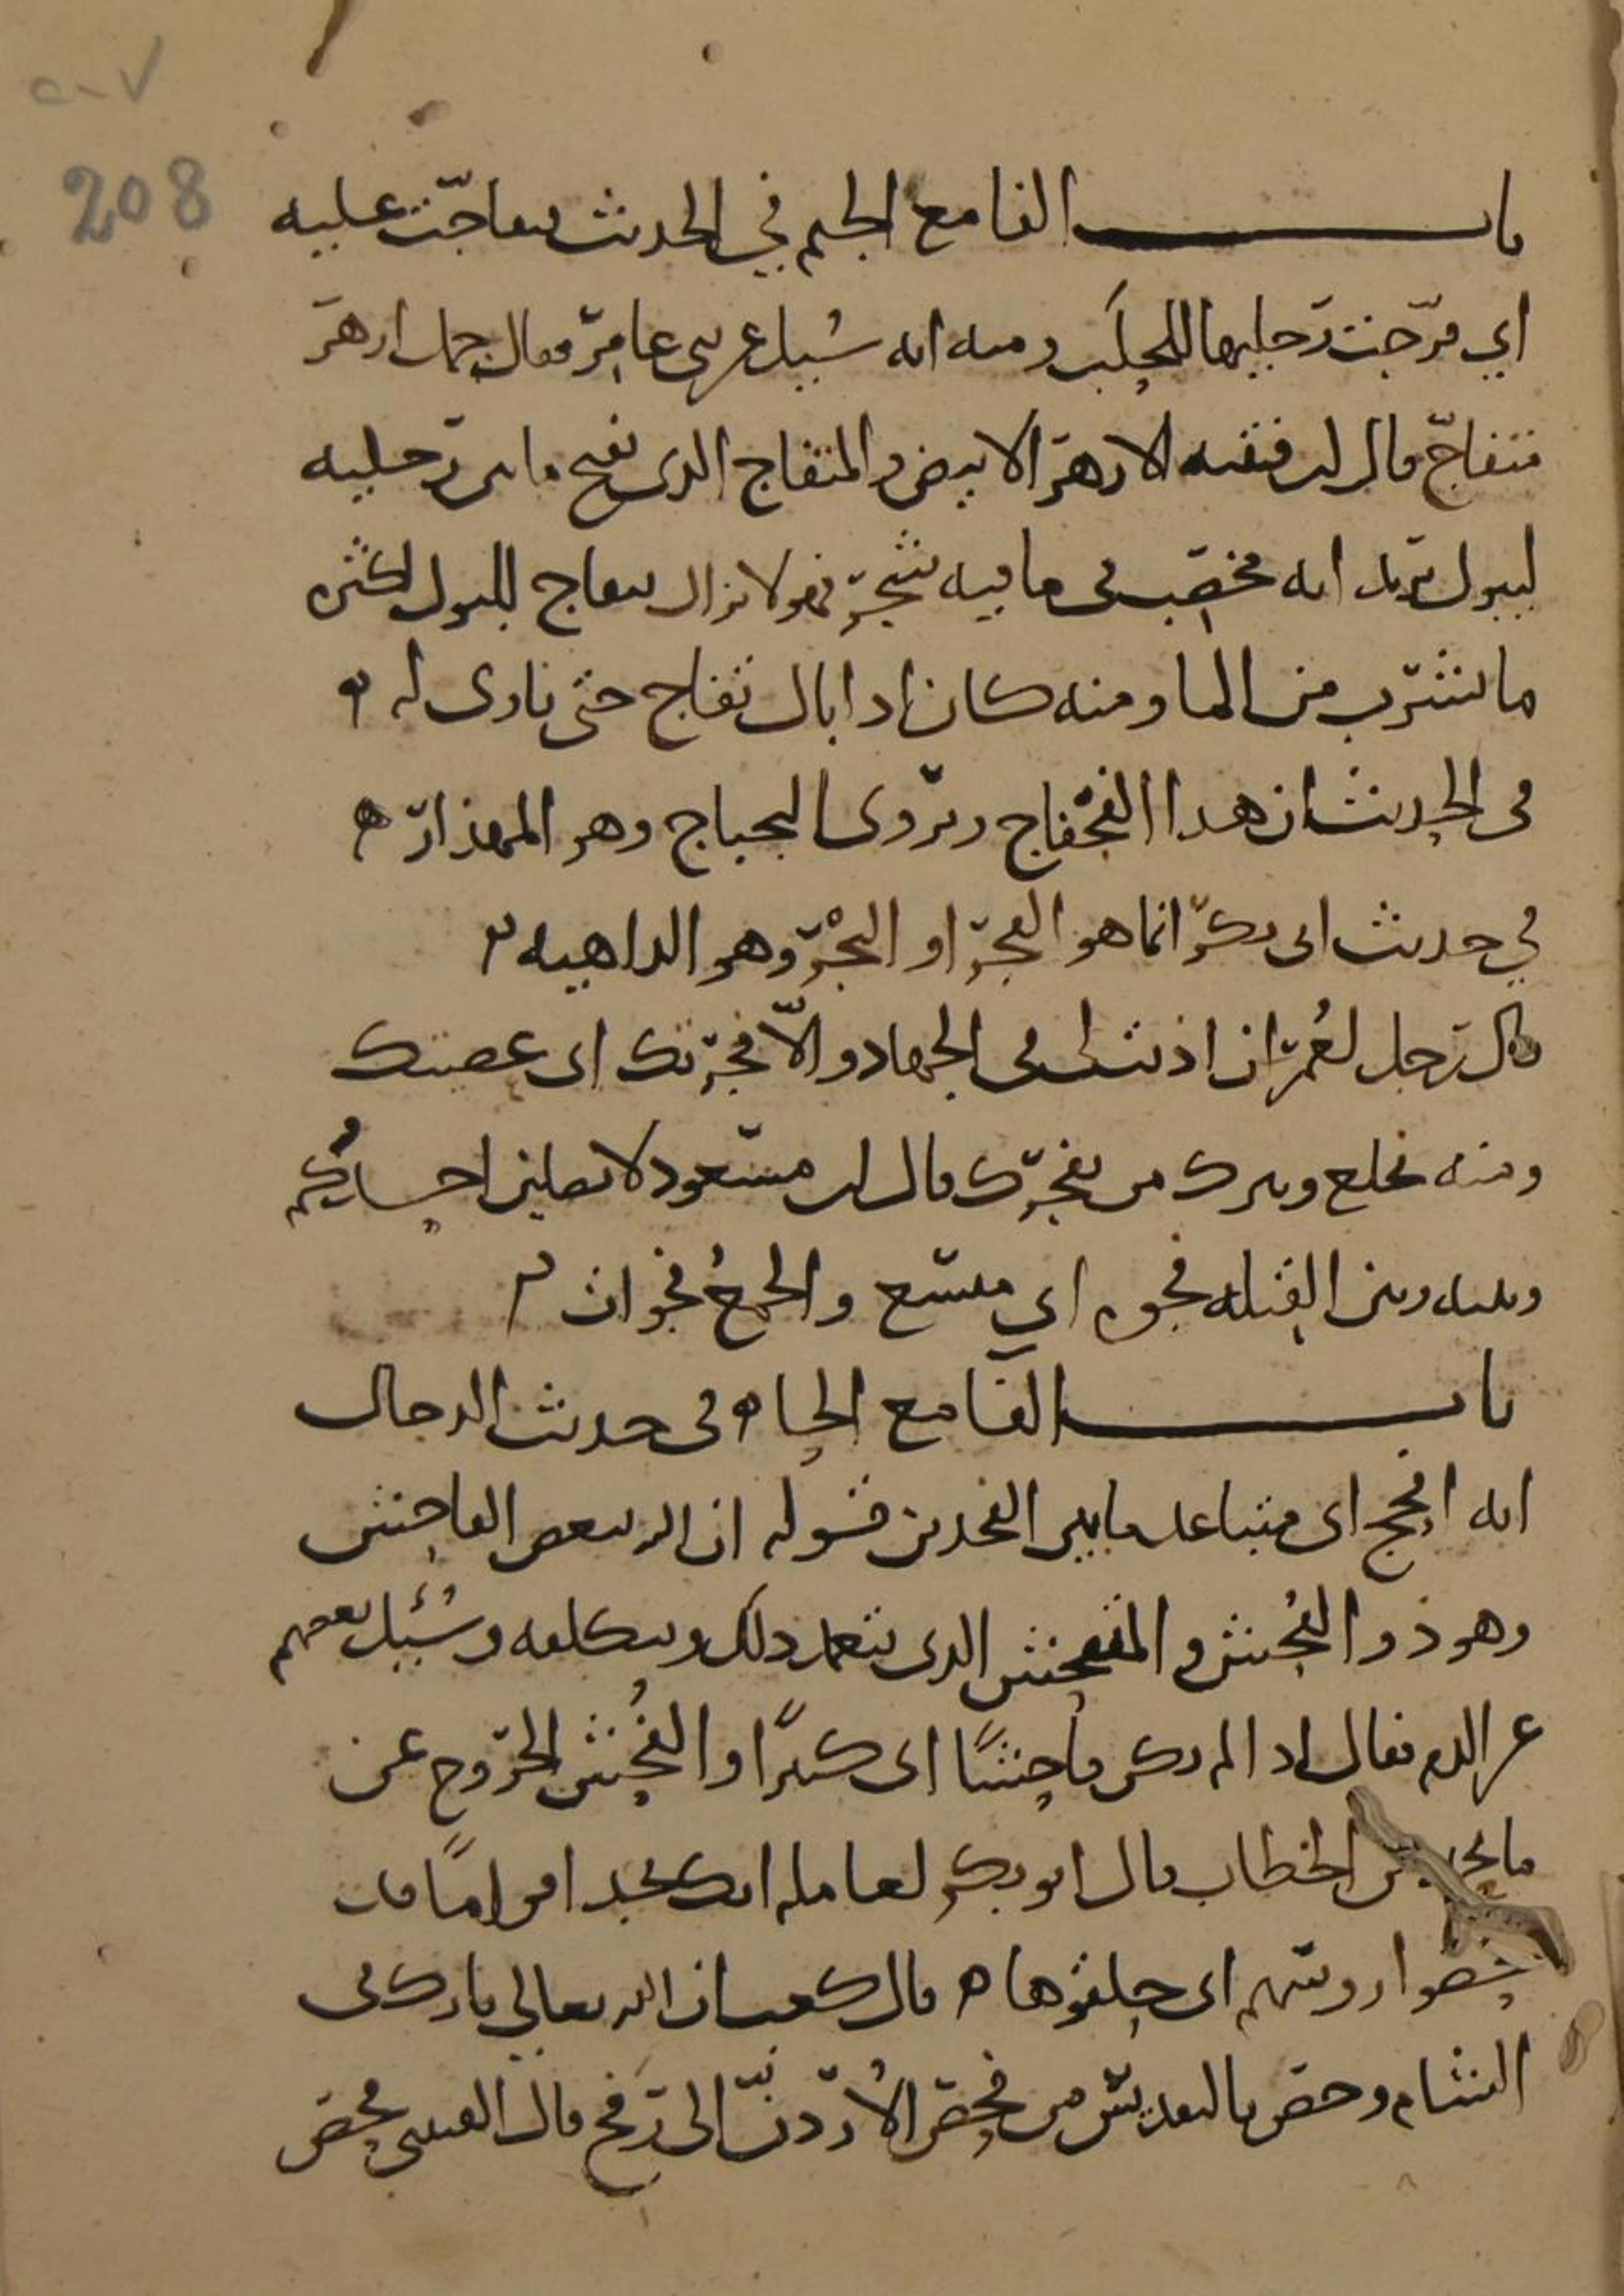 ٢٠٧
208
باب الفا مع الجيم في الحديث فتفاجّت عليه
اي فرّجت رجليها للحلب ومنه انه سُيل عن بني عامر فقال جمل ازهر
متفاجّ قال ابن قتيبه الازهر الابيض والمتفاج الذي يفتح ما بين رجليه
ليبول يريد انه مخصب في ما فيه شجر فهو لا يزال يتفاج للبول لكثره
ما يشرب من الما ومنه كان اذا بال تفاج حتى ناوى له ه
في الحديث ان هذا الفجفاج ويروى البجباج وهو المهذار ه
في حديث ابي بكر انما هو الفجر او البجر وهو الداهيه ه
قال رجل لعُمر ان اذنت لي في الجهاد والاّ فجرتك اي عصيتك
ومنه نخلع ونترك من يفجرك قال ابن مسعود لا يصلين احدكم
وبينه وبين القبله فجوه اي متسع والجمعُ فجوات ه
باب الفا مع الحا ه في حديث الدجال
انه افحج اي متباعد ما بين الفخذين قوله ان الله يبغض الفاحش
وهو ذو الفُحش والمتفحش الذي يتعمد ذلك ويتكلفه وسُئيل بعضهم
عن الدم فقال اذا لم يكن فاحشًا اي كثيرًا والفُحش الخروج عن
الخطاب قال ابو بكر لعامله انك تجد اقوامًا قد
فحصوا روسهم اي حلقوها ه قال كعب ان الله تعالى بارك في
الشام وخص بالتقديس من فحص الأردنّ الى رفح قال القتيبي فحص